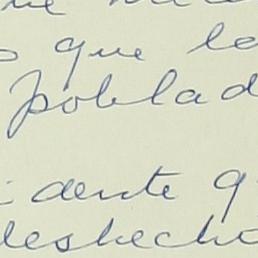 que la
poblad
idente q
deshecho